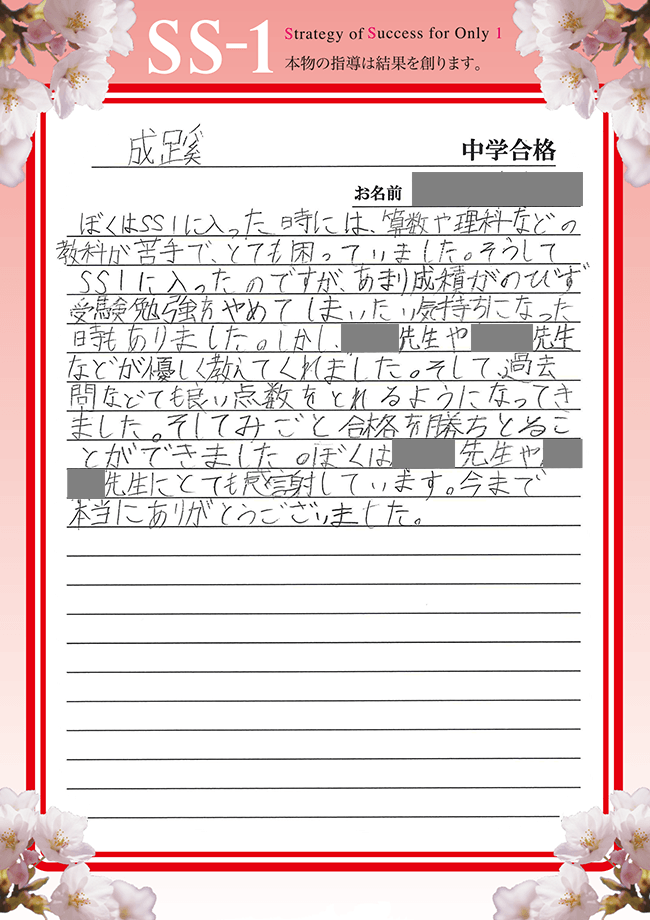 SS-1
Strategy of Success for Only 1
本物の指導は結果を創ります。
成蹊 中学合格
お名前
ぼくはSS1に入った時には、算数や理科などの
教科が苦手で、とても困っていました。そうして
SS1に入ったのですが、あまり成積がのびず
受験勉強をやめてしまいたい気持ちになった
時もありました。しかし、 先生や 先生
などが優しく教えてくれました。そして、過去
問などでも良い点数をとれるようになってき
ました。そしてみごと合格を勝ちとるこ
とができました。ぼくは 先生や
先生にとても感謝しています。今まで
本当にありがとうございました。